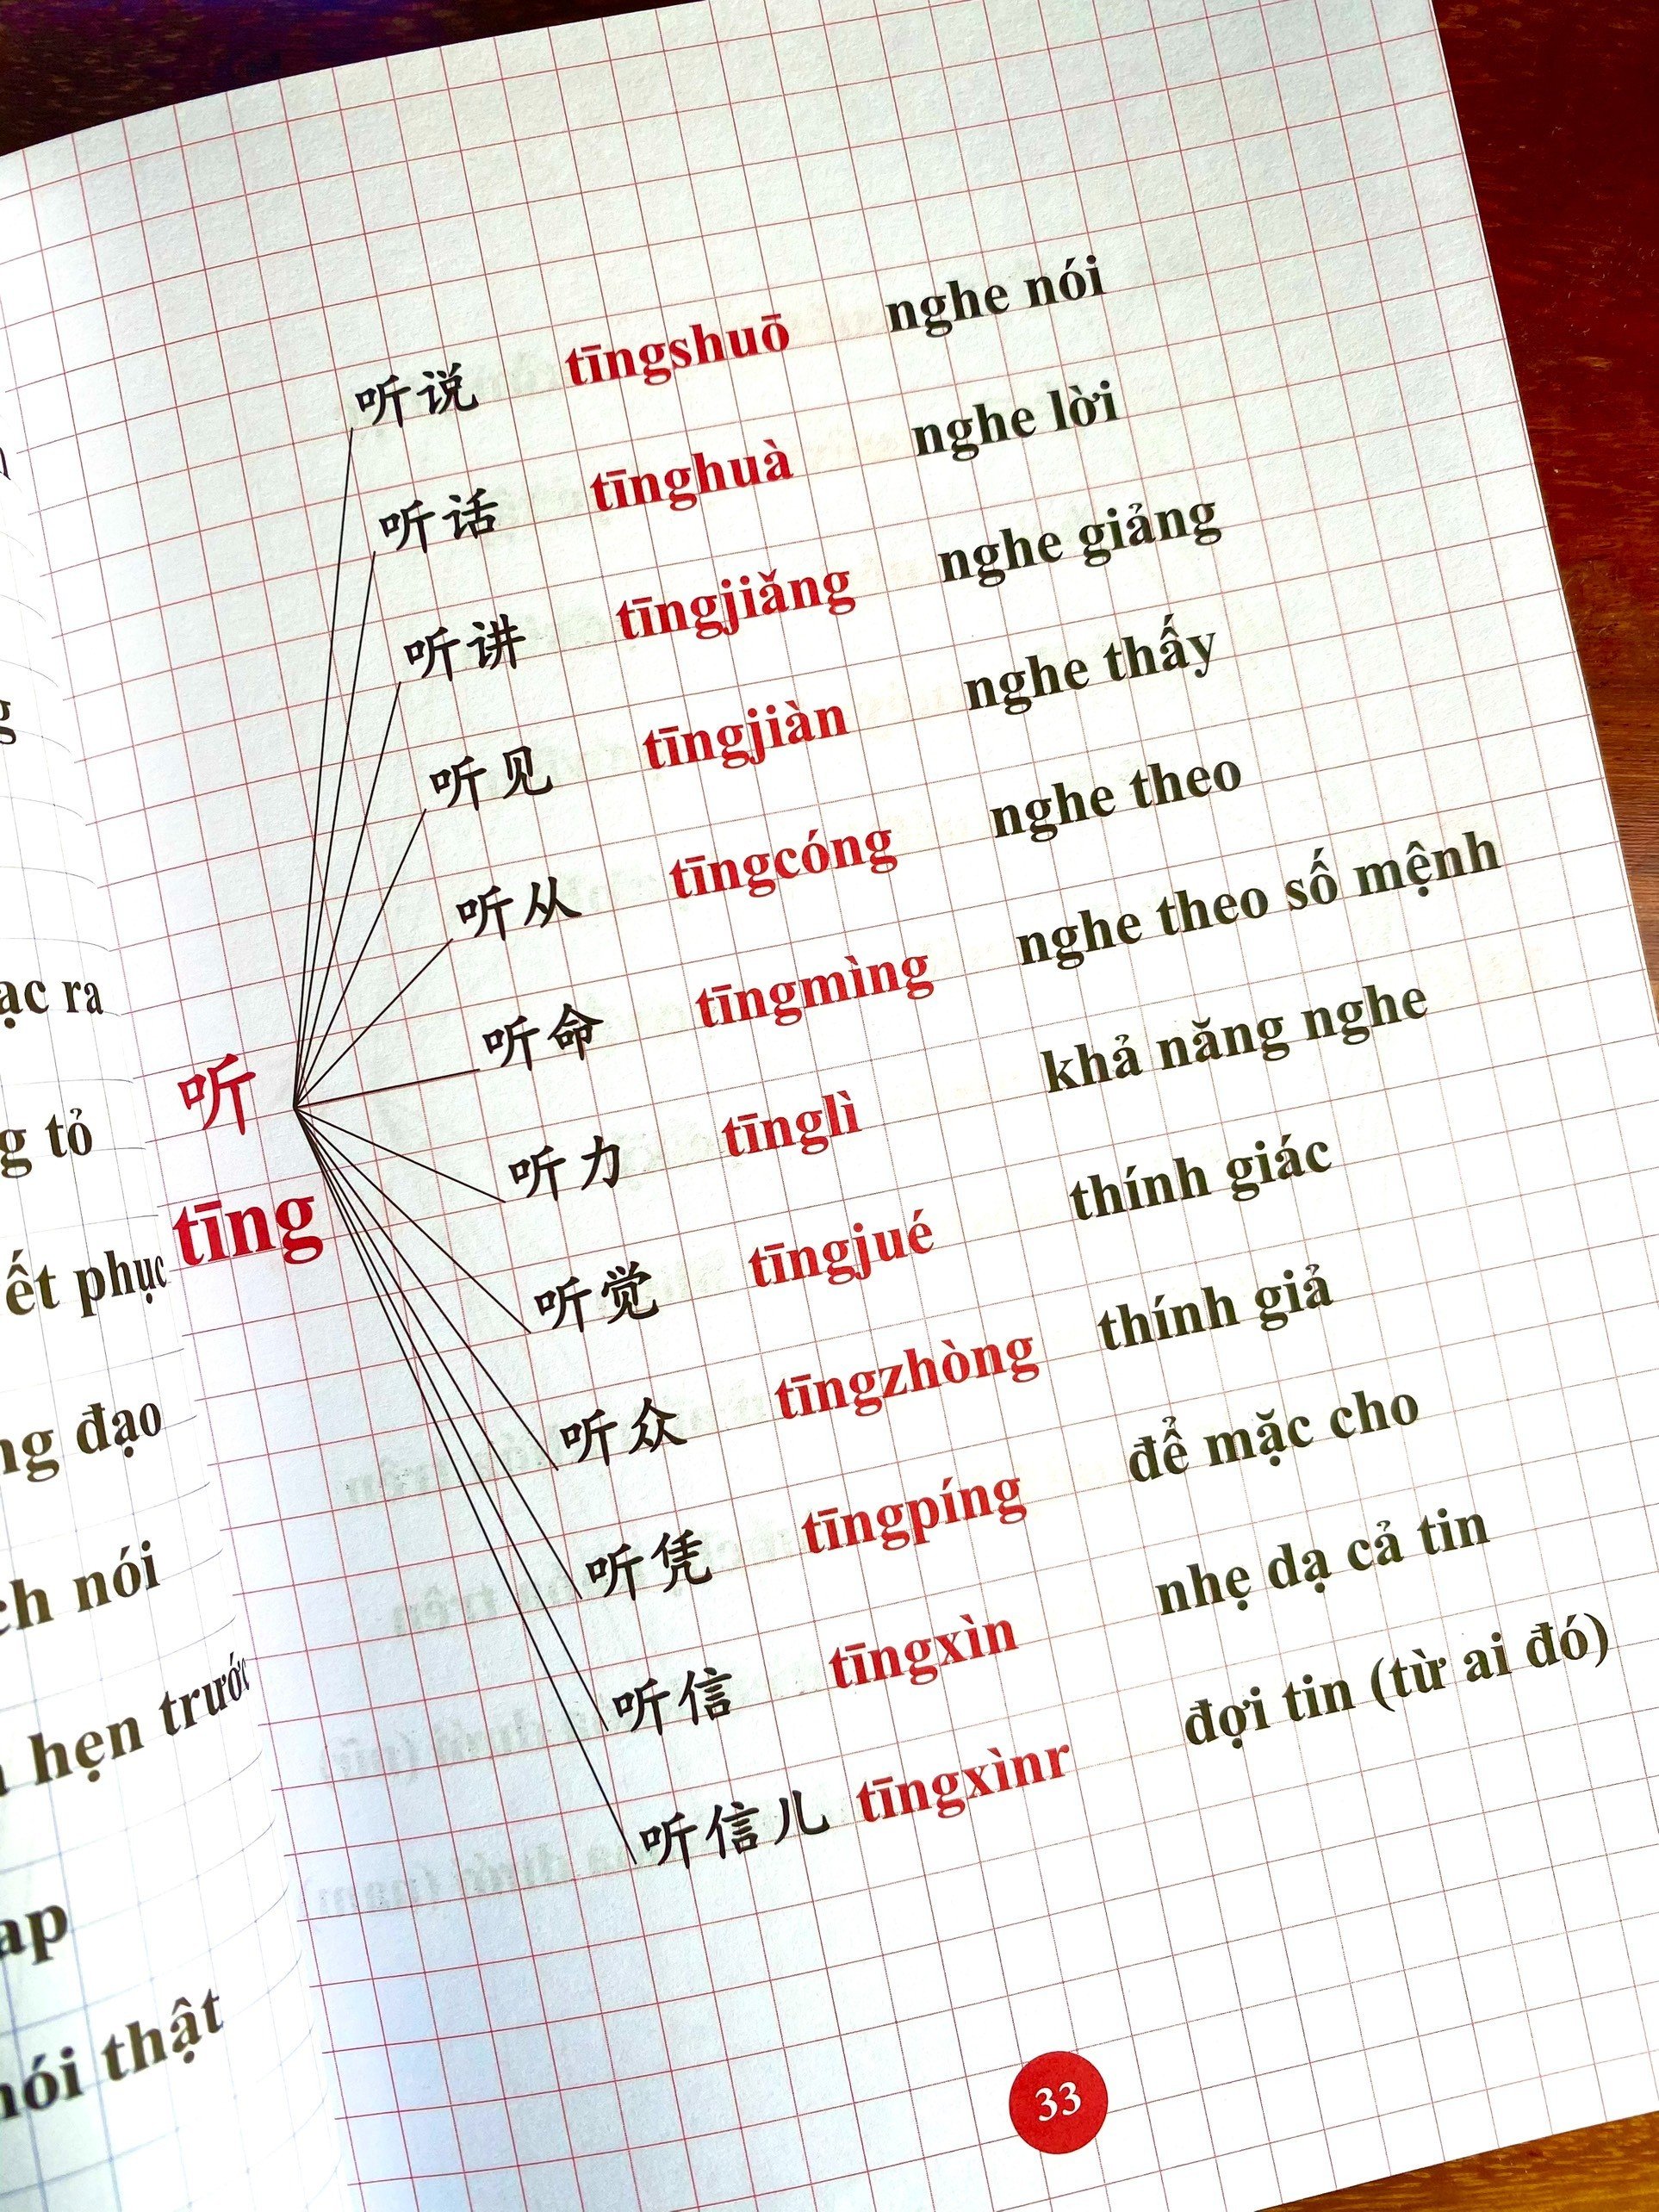 ạc ra
g tỏ
ết phục
ng đạo
ch nói
hẹn trước
ap
nói thật
听
tīng
听说 tīngshuō nghe nói
听话 tīnghuà nghe lời
听讲 tīngjiǎng nghe giảng
听见 tīngjiàn nghe thấy
听从 tīngcóng nghe theo
听命 tīngmìng nghe theo số mệnh
听力 tīnglì khả năng nghe
听觉 tīngjué thính giác
听众 tīngzhòng thính giả
听凭 tīngpíng để mặc cho
听信 tīngxìn nhẹ dạ cả tin
听信儿 tīngxìnr đợi tin (từ ai đó)
33